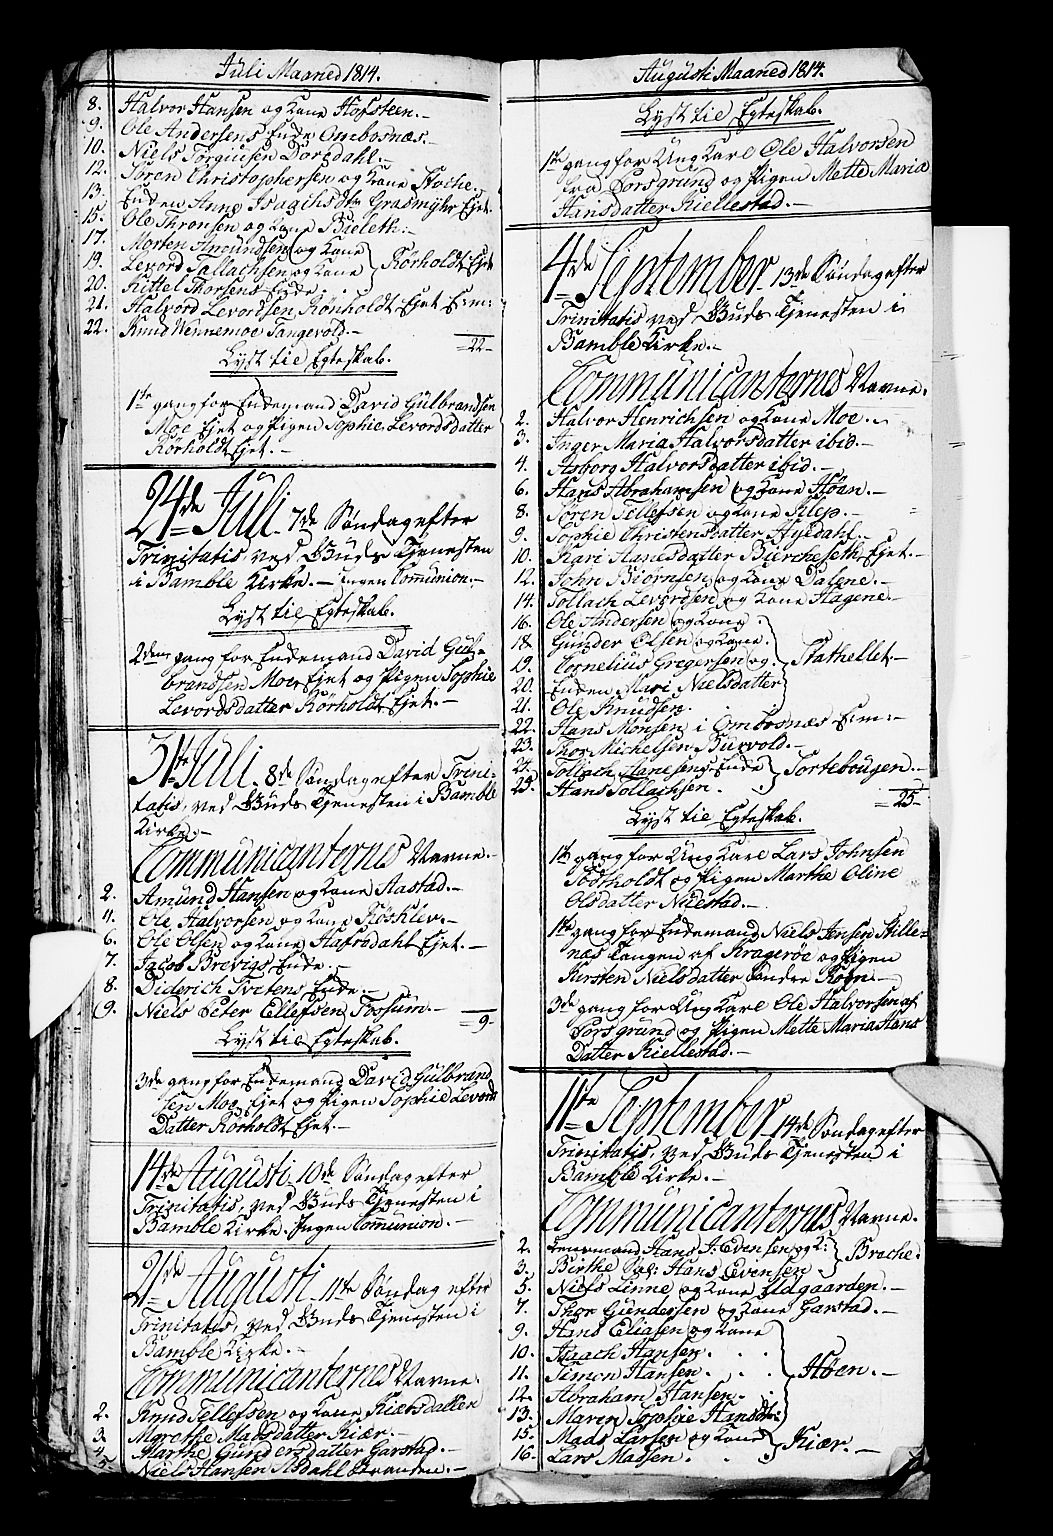 Juli Maaned 1814.
8. Halvor Hansen og Kone Hofsteen.
9. Ole Andersens Enke Ombosnæs.
10. Niels Torgiusen Dordahl.
12. Søren Christophersen og Kone Stoche.
13. Enken Anne Isachsdtr Grasmyhr Ejet.
15. Ole Thronsen og Kone Bieleth.
17. Morten Amundsen og Kone
19. Levord Tallachsen og Kone } Rørholdt Ejet
20. Kittel Thorsens Enke
21. Halvord Levordsen Rønholdt Ejet E:m:
22. Knud Wennemoe Tangevold.
=22=
Lyst til Egteskab.
1ste gang for Enkemand David Gulbrandsen
Moe Ejet og Pigen Sophie Levordsdatter
Rørholdt Ejet.
24de Juli 7de Søndag efter
Trinitatis, ved Guds Tjenesten
i Bamble Kirke. Ingen Comunion.
Lyst til Egteskab.
2den gang for Enkemand David Gul-
brandsen Moe Ejet og Pigen Sophie
Levordsdatter Rørholdt Ejet.
31te Juli 8de Søndag efter Trini-
tatis, ved Guds Tjenesten i Bamble
Kirke.
Communicanternes Navne.
2. Amund Hansen og Kone Aastad.
4. Ole Halvorsen og Kone
6. Ole Olsen og Kone Hafsdahl Ejet.
7. Jacob Brevigs Enke.
8. Diderich Tvetens Enke.
9. Niels Peter Ellefsen Fossum.
=9=
Lyst til Egteskab.
3de gang for Enkemand David Gulbrand
sen Moe Ejet og Pigen Sophie Levords
Datter Rørholdt Ejet.
14de Augusti 10de Søndag efter
Trinitatis, ved Guds Tjenesten i
Bamble Kirke. Ingen Comunion.
21de Augusti 11te Søndag efter
Trinitatis, ved Guds Tjenesten i
Bamble Kirke.
Communicanternes Navne.
2. Knud Tellefsen og Kone Kiærsdallen
3. Mgrethe Madsdatter Kiær.
4. Marthe Gundersdatter Garstad.
5. Niels Hansen Asdahl Stranden.
Augusti Maaned 1814.
Lyst til Egteskab.
1ste gang for Ung Karl Ole Halvorsen
fra Porsgrund og Pigen Mette Maria
Hansdatter Kiellestad.
4de September 13de Søndag efter
Trinitatis ved Guds Tjenesten i
Bamble Kirke.
Communicanternes Navne.
2. Halvor Henrichsen og Kone Moe.
3. Inger Maria Halvorsdatter ibid.
4. Asborg Halvorsdatter ibid.
6. Hans Abrahamsen og Kone Høan.
8. Søren Tellefsen og Kone Klep.
9. Sophie Christensdatter
10. Kari Hansdatter Burcheseth Ejet.
12. John Biørnsen og Kone Dalene.
14. Tollach Levordsen og Kone Hagene.
16. Ole Andersen og Kone
18. Gunder Olsen og Kone
19. Cornelius Gregersen og } Stathellet.
20. Enken Mari Nielsdatter
21. Ole Knudsen.
22. Hans Monsen i Ombosnæs E:m:
23. Thor Michelsen Burvold.
24. Tollach Hansens Enke } Tortebougen.
25. Hans Tollachsen.
=25=
Lyst til Egteskab.
1ste gang for Ung Karl Lars Johnsen
Todtholdt og Pigen Marthe Oline
Olsdatter Nuestad.
1ste gang for Enkemand Niels Jensen Stille-
næs Tangen af Kragerøe og Pigen
Kirsten Nielsdatter Søndre
3de gang for Ung Karl Ole Halvorsen af
Porsgrund og Pigen Mette Maria Hans
Datter Kiellestad.
11te September 14de Søndag efter
Trinitatis, ved Guds Tjenesten i
Bamble Kirke.
Communicanternes Navne.
2. Hans J: Evensen og K: } Brache.
3. Birthe Sal: Hans Evensen
5. Niels Linne og Kone Udgaarden.
7. Thor Gundersen og Kone Garstad.
9. Hans Eliasen og Kone
10. Isaach Hansen.
11. Simon Hansen. } Høen.
12. Abraham Hansen.
13. Maren Sophie Hansdtr:
15. Mads Larsen og Kone } Kiær.
16. Lars Madsen.